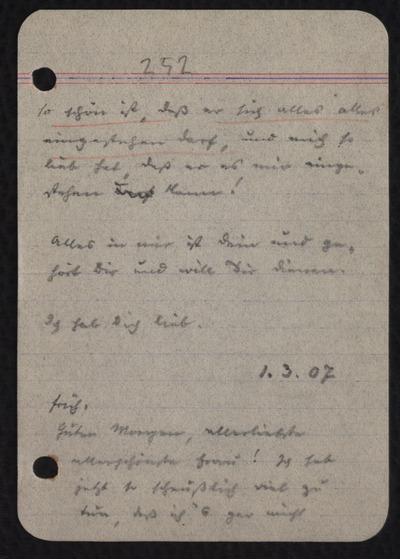 252
so schön ist, daß er sich alles alles
eingestehen darf, und mich so
lieb hat, daß er es mir einge-
stehen kann!
Alles in mir ist dein und ge-
hört Dir und will Dir dienen.
Ich hab Dich lieb.
1.3.07
früh.
Guten Morgen, allerliebste
allerschönste Frau! Ich hab
jetzt so scheußlich viel zu
tun, daß ich's gar nicht